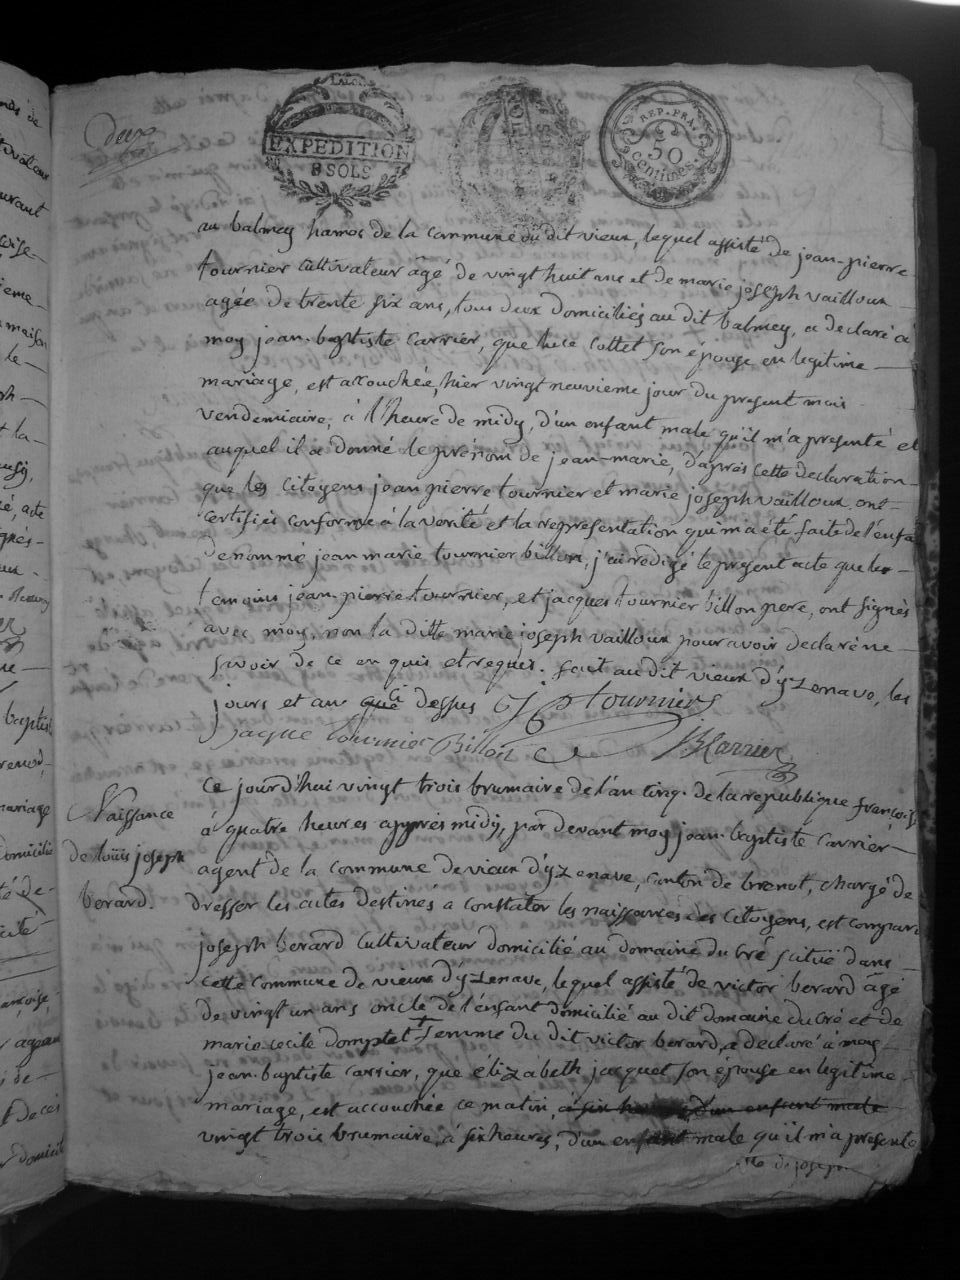 deux
EXPEDITION
8 SOLS
REP. FRA.
50
centimes.
au balmey hamos de la commune du dit vieux, lequel assisté de jean-pierre
tournier cultivateur âgé de vingt huit ans et de marie joseph vailloux
agée de trente six ans, tous deux domiciliés au dit balmey, a declaré à
moy jean-baptiste carrier, que luce cottet son épouse en legitime
mariage, est accouchée, hier vingt neuvieme jour du present mois
vendemiaire, à l'heure de midy, d'un enfant male qu'il m'a presenté et
auquel il a donné le prénom de jean-marie, d'après cette declaration
que les citoyens jean pierre tournier et marie joseph vailloux ont
certifiés conforme à la verité et la representation qui m'a été faite de l'enfa
denommé jean marie tournier billon, j'ai redigé le present acte que les
temoins jean-pierre tournier, et jacques tournier billon pere, ont signés
avec moy, non la ditte marie joseph vailloux pour avoir declaré ne
savoir de ce enquis et requis. fait au dit vieux d'yzenave, les
jours et an que ci dessus J p tournier
Jaque tournier Billon JB Carrier
Naissance
de loüis joseph
berard.
Ce jourd'hui vingt trois brumaire de l'an cinq. de la republique françois
à quatre heures apprès midy, par devant moy jean-baptiste carrier
agent de la commune de vieux d'yzenave, canton de brenot, chargé de
dresser les actes destinés a constater les naissances des citoyens, est comparu
joseph berard cultivateur domicilié au domaine du cré scitué dans
cette commune de vieux d'yzenave, lequel assisté de victor berard âgé
de vingt un ans oncle de l'enfant domicilié au dit domaine du cré et de
marie cecile domptet femme du dit victor berard, a declaré à moy
jean-baptiste carrier, que élizabeth jacquet son épouse en legitime
mariage, est accouchée ce matin, à six heures d'un enfant male
vingt trois brumaire, à six heures, d'un enfant male qu'il m'a presenté